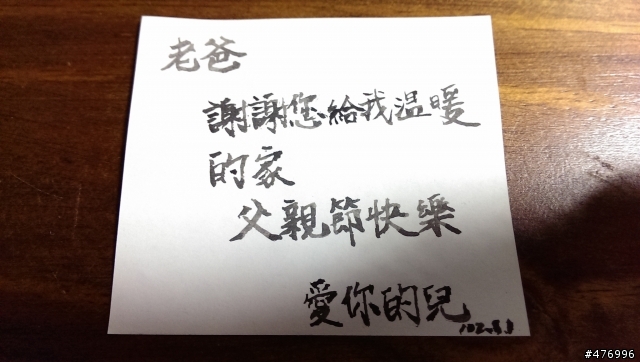 老爸
謝謝您給我温暖
的家
父親節快樂
愛你的兒
#476996